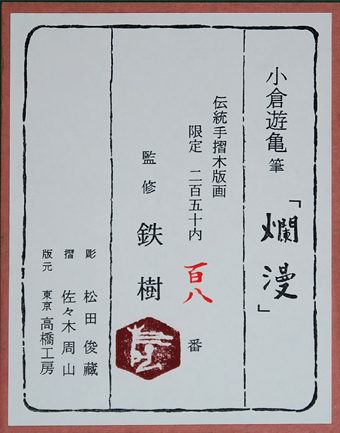 小倉遊亀筆 「爛漫」
伝統手摺木版画
限定 二百五十内 百八 番
監修 鉄樹
彫 松田俊藏
摺 佐々木周山
版元 東京 高橋工房